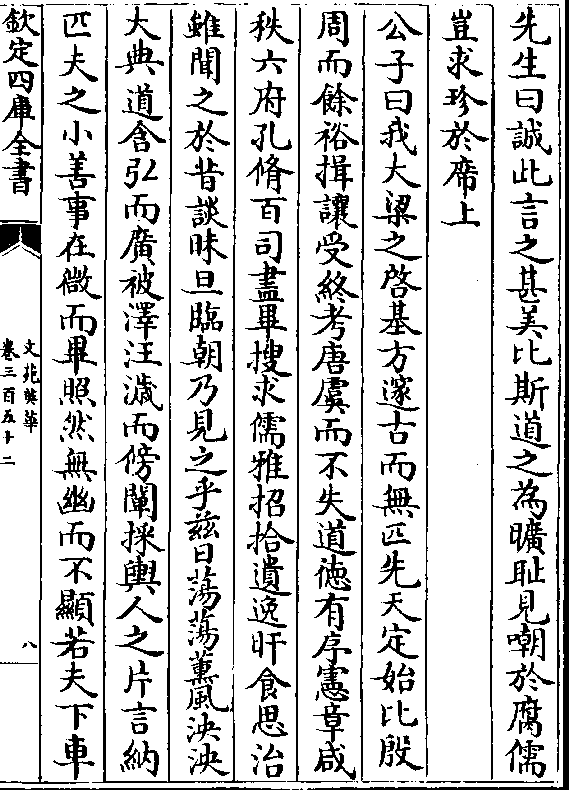 先生曰誠此言之甚美比斯道之為曠耻見嘲於腐儒
豈求珍於席上
公子曰我大梁之啓基方邃古而無匹先天定始比殷
周而餘裕揖讓受終考唐虞而不失道徳有序憲章咸
秩六府孔脩百司盡畢搜求儒雅招拾遺逸旰食思治
雖聞之於昔談昧旦臨朝乃見之乎兹日蕩蕩薰風泱泱
大典道含弘而廣被澤汪濊而傍闡採輿人之片言納
匹夫之小善事在微而畢照然無幽而不顯若夫下車
欽定四庫全書
文苑英華
卷三百五十二
八